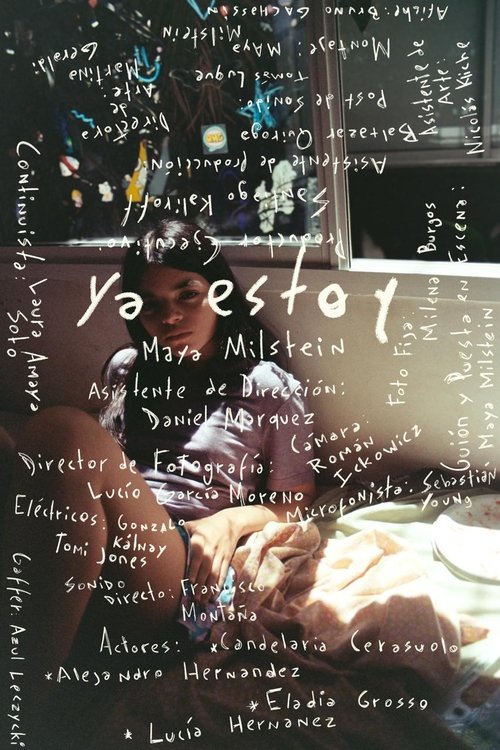 Afiche: Bruno Gachassin
Montaje: Maya
Milstein
Post de Sonido:
Tomas Luque
Directora
de
Arte
Martina
Geraldi
Asistente de
Arte:
Nicolás Kliche
Asistente de producción:
Baltazar Quiroga
Productor Ejecutivo:
Santiago Kalinoff
Continuista: Laura Amaya
Soto
ya estoy
Maya Milstein
Asistente de Dirección:
Daniel Marquez
Foto Fija:
Milena Burgos
Guión y Puesta en Escena:
Maya Milstein
Cámara:
Román
Ickowicz
Director de Fotografía:
Lucío García Moreno
Microfonista: Sebastián
Young
Eléctricos: Gonzalo
Kálnay
Tomi Jones
Sonido
Directo: Francisco
Montaña
Gaffer: Azul Leczycki
Actores: *Candelaria Cerasuolo
*Alejandro Hernandez
*Eladia Grosso
* Lucía Hernanez